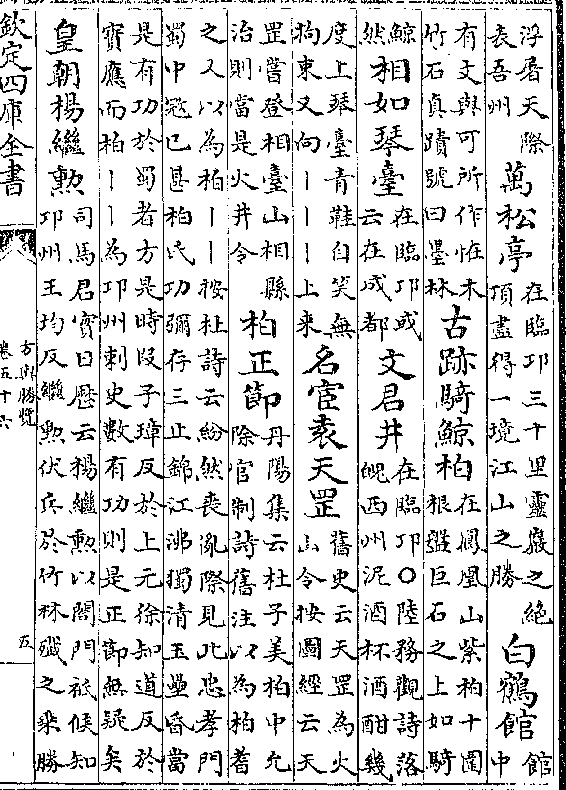 浮眉天際表吾州 萬松亭 在臨邛三十里靈巖之絶頂盡得一境江山之勝 白鶴館 館中
有文與可所作恠木竹石真蹟號曰墨林 古跡騎鯨柏 在鳳凰山紫柏十圍根盤巨石之上如騎
鯨然 相如琴臺 在臨邛或云在成都 文君井 在臨邛〇陸務觀詩落魄西州泥酒杯酒酣幾
度上琴臺青鞋自笑無拘束又向丨丨丨上來 名宦袁天罡 舊史云天罡為火山令按圖經云天
罡嘗登相臺山相縣治則當是火井令 柏正節 丹陽集云杜子美柏中允除官制詩舊注以為柏耆
之又以為柏丨丨按杜詩云紛然喪亂際見此忠孝門蜀中冦已甚柏氏功彌存三止錦江沸獨清玉壘昏當
是有功於蜀者方是時段子璋反於上元徐知道反於寶應而柏丨丨為邛州刺史數有功則是正節無疑矣
皇朝楊繼勲 司馬君實日歴云楊繼勲以閤門祗候知邛州王均反繼勲伏兵於竹林殱之乗勝
欽定四庫全書
方輿勝覽
卷五十六
五